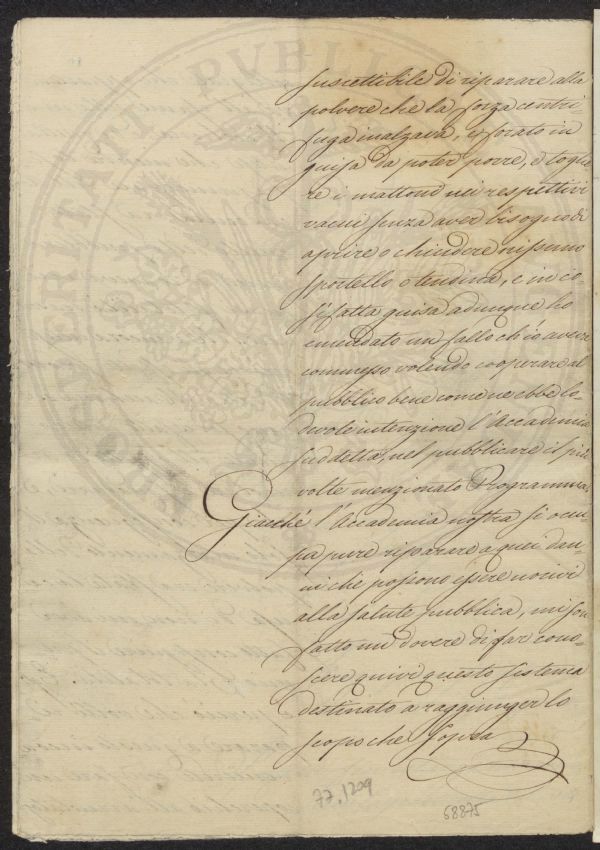 suscettibile di riparare alla
polvere che la forza centri-
fuga inalzava, e forato in
guisa da poter porre, e toglie
re i mattoni nei respettivi
vacui senza aver bisogno di
aprire o chiudere nissuno
sportello, o tendina, e in co
sifatta guisa adunque ho
emendato un fallo ch'io aveva
commesso volendo cooperare al
pubblico bene come ne ebbe lo-
devole intenzione l'Accademia
suddetta, nel pubblicare il più
volte menzionato Programma,
Giacché l'Accademia nostra si occu-
pa pure riparare a quei dan-
ni che possono essere nocivi
alla salute pubblica, mi son
fatto un dovere di far cono-
scere quivi questo sistema
destinato a raggiunger lo
scopo che sopra
77.1209
68875
PROSPERITATI PUBLICAE